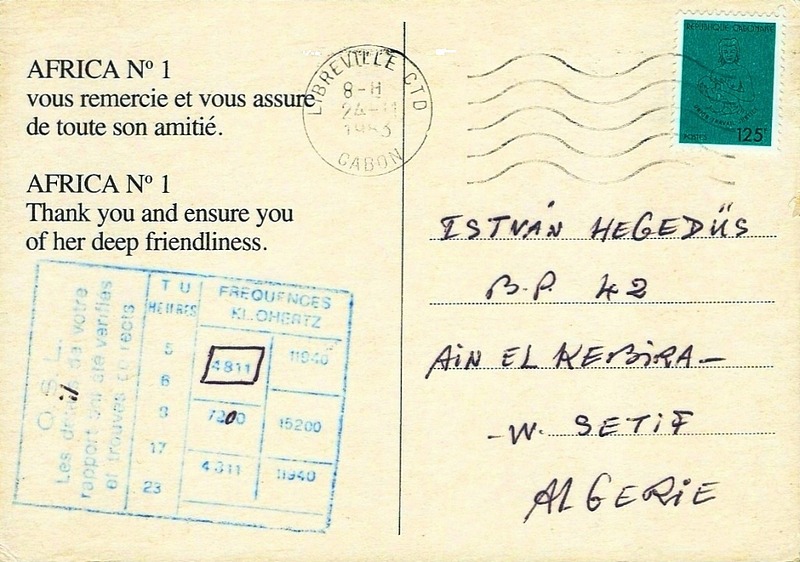 AFRICA Nº 1
vous remercie et vous assure
de toute son amitié.
AFRICA Nº 1
Thank you and ensure you
of her deep friendliness.
LIBREVILLE CTD
8-H
24-11
1983
GABON
125F
ISTVÁN HEGEDÜS
B.P. 42
AÏN EL KEBIRA-
-W. SETIF
ALGERIE
Q S L
Les détails de votre
rapport ont été vérifiés
et trouvés corrects
T U
HEURES
FREQUENCES
KILOHERTZ
5
6
9
17
23
4811 11940
7200 15200
4811 11940